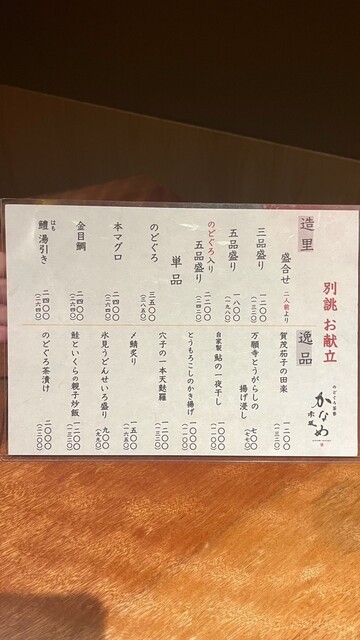 別誂 お献立
のどぐろ茶寮
かなめ
赤坂
造里
盛合せ 二人前より
三品盛り 一二〇〇
(一三二〇)
五品盛り 一八〇〇
(一九八〇)
のどぐろ入り
五品盛り 二二〇〇
単品
のどぐろ 三五〇〇
(三八五〇)
本マグロ 二四〇〇
(二六四〇)
金目鯛 二四〇〇
(二六四〇)
鱧湯引き 二四〇〇
はも
(二六四〇)
逸品
賀茂茄子の田楽 一二〇〇
(一三二〇)
万願寺とうがらしの
揚げ浸し 七〇〇
(七七〇)
自家製 鮎の一夜干し 一〇〇〇
(一一〇〇)
とうもろこしのかき揚げ 一〇〇〇
(一一〇〇)
穴子の一本天麩羅 一二〇〇
(一三二〇)
〆鯖炙り 一五〇〇
(一六五〇)
氷見うどんせいろ盛り 九〇〇
(九九〇)
鮭といくらの親子炒飯 二〇〇〇
(二二〇〇)
のどぐろ茶漬け 二〇〇〇
(二二〇〇)